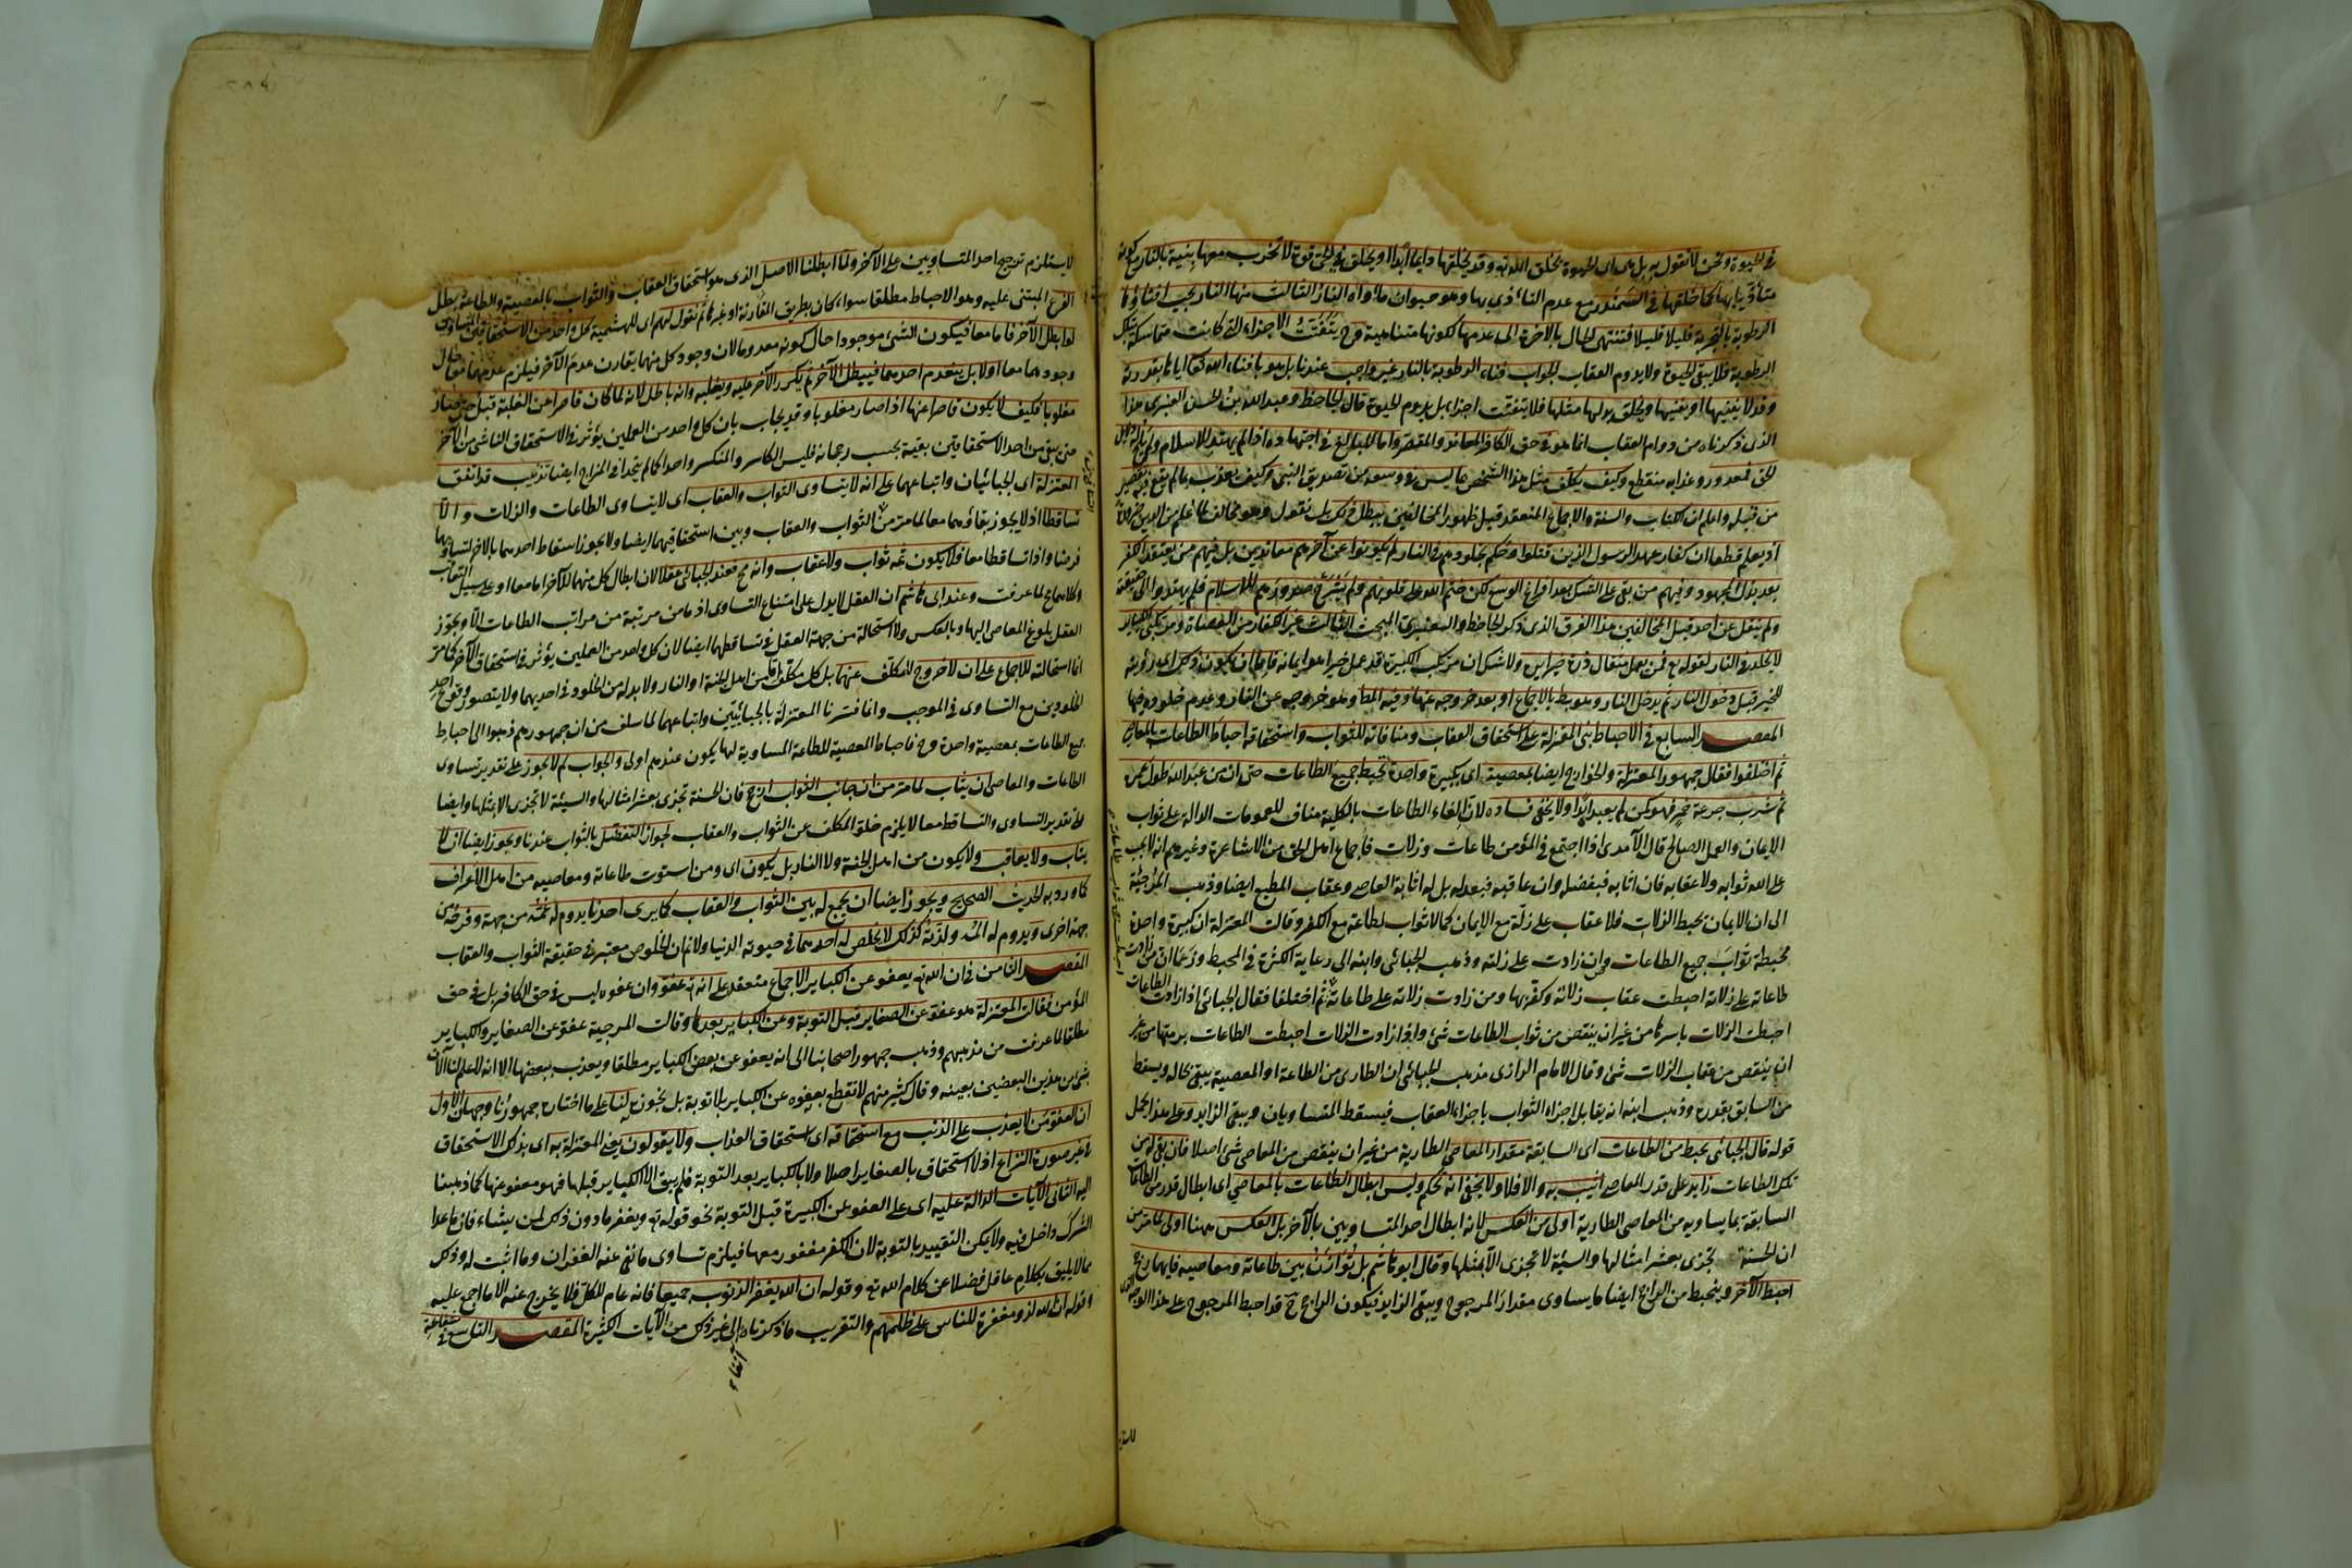 في الحيوة ونحن لا نقول به بل هي اى الحيوة بخلق الله تع وقد يخلقها دايما ابدا او يخلق في الحي قوة لا تخرب معها بنية بالنار مع كونه
متأذيا بها كما خلقها في السمندر مع عدم التأذى بها وهو حيوان مأواه النار الثالث منها النار يجب افناؤها
الرطوبة بالتجربة قليلا قليلا فتنتهى الحال بالاخرة الى عدمها لكونها متناهية وح يتفتت الاجزاء التى كانت متماسكة بتلك
الرطوبة فلا يبقى الحيوة ولا يدوم العقاب الجواب فناء الرطوبة بالنار غير واجب عندنا بل هو بافناء الله تع اياها بقدرته
وقد لا يفنيها او يفنيها ويخلق بدلها مثلها فلا يتفتت اجزاء بل يدوم الحيوة قال الجاحظ وعبد الله بن الحسن العنبرى هذا
الذى ذكرناه من دوام العقاب انما هو في حق الكافر المعاند والمقصر واما المبالغ في اجتهاده اذا لم يهتد للاسلام ولم
الحق فمعذور وعذابه منقطع وكيف يكلف مثل هذا الشخص بما ليس في وسعه من تصديق النبي وكيف يعذب بما لم يقع فيه تقصير
من قبله واعلم ان الكتاب والسنة والاجماع المنعقد قبل ظهور المخالفين يبطل ذلك بل نقول هو مخالف لما علم من الدين
اذ يعلم قطعا ان كفار عهد الرسول الذين قتلوا وحكم بخلودهم في النار لم يكونوا عن آخرهم معاندين بل منهم من يعتقد الكفر
بعد بذل المجهود وفيهم من بقى على الشك بعد افراغ الوسع لكن ختم الله على قلوبهم ولم يشرح صدورهم للاسلام فلم يهتدوا الى حقيقته
ولم ينقل عن احد قبل المخالفين هذا الفرق الذى ذكره الجاحظ والعنبرى المبحث الثالث غير الكفار من العصاة ومرتكبى الكباير
لا يخلد في النار لقوله تع فمن يعمل مثقال ذرة خيرا يره ولا شك ان مرتكب الكبيرة قد عمل خيرا هو ايمانه فاما ان يكون ذلك اى رؤيته
للخير قبل دخول النار ثم يدخل النار وهو بط بالاجماع او بعد خروجه عنها وفيه المط وهو خروجه عن النار وعدم خلوده فيها
المقصد السابع في الاحباط بنى المعتزلة على استحقاق العقاب ومنافاته للثواب واستحقاقه احباط الطاعات بالمعاصى
ثم اختلفوا فقال جمهور المعتزلة والخوارج ايضا بمعصية اى بكبيرة واحدة تحبط جميع الطاعات حتى ان من عبد الله طول عمره
ثم شرب جرعة خمر فهو كمن لم يعبد ابدا ولا يخفى فساده لانه الغاء الطاعات بالكلية مناف للعمومات الدالة على ثواب
الايمان والعمل الصالح قال الآمدى اذا اجتمع في المؤمن طاعات وزلات فاجماع اهل الحق من الاشاعرة وغيرهم انه لا يجب
على الله ثوابه ولا عقابه فان اثابه فبفضله وان عاقبه فبعدله بل له اثابة العاصى وعقاب المطيع ايضا وذهب المرجئة
الى ان الايمان يحبط الزلات فلا عقاب على زلة مع الايمان كما لا ثواب لطاعة مع الكفر وقالت المعتزلة ان كبيرة واحدة
تحبطة ثواب جميع الطاعات وان زادت على زلته وذهب الجبائى وابنه الى رعاية الكثرة في المحبط وزعما ان من زادت
طاعاته على زلاته احبطت عقاب زلاته وكفرتها ومن زادت زلاته على طاعاته ثم اختلفا فقال الجبائى اذا زادت الطاعات
احبطت الزلات باسرها من غير ان ينقص من ثواب الطاعات شئ واذا زادت الزلات احبطت الطاعات برمتها من غير
ان ينقص من عقاب الزلات شئ وقال الامام الرازى مذهب الجبائى ان الطارى من الطاعة او المعصية يبقى بحاله ويسقط
من السابق بقدره وذهب ابنه انه يقابل اجزاء الثواب باجزاء العقاب فيسقط المتساويان ويبقى الزايد وعلى هذا يحمل
قوله قال الجبائى يحبط من الطاعات اى السابقة مقدار المعاصى الطارية من غير ان ينقص من المعاصى شئ اصلا فان بقى له من
تلك الطاعات زايد على قدر المعاصى اثيب به والا فلا ولا يخفى انه تحكم وليس ابطال الطاعات بالمعاصى اى ابطال قدر من الطاعات
السابقة بما يساويه من المعاصى الطارية اولى من العكس لانه ابطال احد المتساويين بالآخر بل العكس ههنا اولى لما مر من
ان الحسنة تجزى بعشر امثالها والسيئة لا تجزى الا بمثلها وقال ابو هاشم بل توازن بين طاعاته ومعاصيه فايهما رجح
احبط الآخر وينحبط من الراجح ايضا ما يساوى مقدار المرجوح ويبقى الزايد فيكون الراجح ح قد احبط المرجوح على هذا الوجه
لا يستلزم ترجيح احد المتساويين على الآخر ولما ابطلنا الاصل الذى هو استحقاق العقاب والثواب بالمعصية والطاعة بطل
الفرع المبتنى عليه وهو الاحباط مطلقا سواء كان بطريق المقارنة او غيره ثم نقول لهم اى للبهشمية كل واحد من الاستحقاقين
لو ابطل الآخر فاما معا فيكون الشئ موجودا حال كونه معدوما لان وجود كل منهما يقارن عدم الآخر فيلزم عدمهما معا حال
وجودهما معا اولا بل ينعدم احدهما فيبطل الآخر ثم يكر الآخر عليه ويغلبه وانه باطل لانه لما كان قاصرا عن الغلبة قبل
مغلوبا فكيف لا يكون قاصرا عنها اذا صار مغلوبا وقد يجاب بان كل واحد من العملين يؤثر في الاستحقاق الناشى من الآخر
حتى يبقى من احد الاستحقاقين بقية بحسب رجحانه فليس الكاسر والمنكسر واحدا كما لم يتحد في المزاج ايضا تذنيب قد اتفق
المعتزلة اى الجبائيان واتباعهما على انه لا يتساوى الثواب والعقاب اى لا يتساوى الطاعات والزلات والا
تساقطا اذ لا يجوز بقاؤهما معا لما مر من الثواب والعقاب وبين استحقاقيهما ايضا ولا يجوز اسقاط احدهما بالآخر لتساويهما
فرضا واذا تساقطا معا فلا يكون ثمه ثواب ولا عقاب وانه مح فعند الجبائى عقلا لان ابطال كل منهما للآخر اما معا او على سبيل التعاقب
وكلاهما مح لما عرفت وعند ابى هاشم ان العقل لا يدل على امتناع التساوى اذ ما من مرتبة من مراتب الطاعات الا ويجوز
العقل بلوغ المعاصى اليها وبالعكس ولا استحالة من جهة العقل في تساقطهما ايضا لان كل واحد من العملين يؤثر في استحقاق الآخر كما مر
انما استحالته للاجماع على ان لا خروج للمكلف عنهما بل كل مكلف اما من اهل الجنة او النار ولا بد له من الخلود في احديهما ولا يتصور وقوع احد
الخلودين مع التساوى في الموجب وانما فسرنا المعتزلة بالجبائيين واتباعهما لما سلف من ان جمهورهم ذهبوا الى احباط
جميع الطاعات بمعصية واحدة وح فاحباط المعصية للطاعة المساوية لها يكون عندهم اولى والجواب لم لا يجوز على تقدير تساوى
الطاعات والمعاصى ان يثاب لما مر من ان جانب الثواب ارجح فان الحسنة تجزى بعشر امثالها والسيئة لا تجزى الا بمثلها وايضا
على تقدير التساوى والتساقط معا لا يلزم خلو المكلف عن الثواب والعقاب لجواز التفضل بالثواب عندنا ويجوز ايضا ان لا
يثاب ولا يعاقب ولا يكون من اهل الجنة ولا النار بل يكون اى ومن استوت طاعاته ومعاصيه من اهل الاعراف
كما ورد به الحديث الصحيح ويجوز ايضا ان يجمع له بين الثواب والعقاب كما يرى احدنا يدوم له غمه من جهة وفرحه من
جهة اخرى ويدوم له المه ولذته كذلك لا يخلص له احدهما في حيوته الدنيا ولا نم ان الخلوص معتبر في حقيقة الثواب والعقاب
المقصد الثامن في ان الله تع يعفو عن الكباير الاجماع منعقد على انه تع عفو وان عفوه ليس في حق الكافر بل في حق
المؤمن فقال المعتزلة هو عفو عن الصغاير قبل التوبة وعن الكباير بعدها وقالت المرجية عفو عن الصغاير والكباير
مطلقا لما عرفت من مذهبهم وذهب جمهور اصحابنا الى انه يعفو عن بعض الكباير مطلقا ويعذب ببعضها الا انه لا علم لنا الآن
بشئ من هذين البعضين بعينه وقال كثير منهم لا نقطع بعفوه عن الكباير بلا توبة بل نجوزه لنا على ما اختاره جمهورنا وجهان الاول
ان العفو من لا يعذب على الذنب مع استحقاقه اى استحقاق العذاب ولا يقولون يعنى المعتزلة به اى بذلك الاستحقاق
في غير صورة النزاع اذ لا استحقاق بالصغاير اصلا ولا بالكباير بعد التوبة فلم يبق الا الكباير قبلها فهو معفو عنها كما ذهبنا
اليه الثانى الآيات الدالة عليه اى على العفو عن الكبيرة قبل التوبة نحو قوله تع ويغفر ما دون ذلك لمن يشاء فان ما عدا
الشرك داخل فيه ولا يمكن التقييد بالتوبة لان الكفر مغفور معها فيلزم تساوى ما نفى عنه الغفران وما اثبت له وذلك
مما لا يليق بكلام عاقل فضلا عن كلام الله تع وقوله ان الله يغفر الذنوب جميعا فانه عام للكل فلا يخرج عنه الا ما اجمع عليه
وقوله ان الله لذو مغفرة للناس على ظلمهم والتقريب ما ذكرناه الى غير ذلك من الآيات الكثيرة المقصد التاسع في شفاعة
آنفا